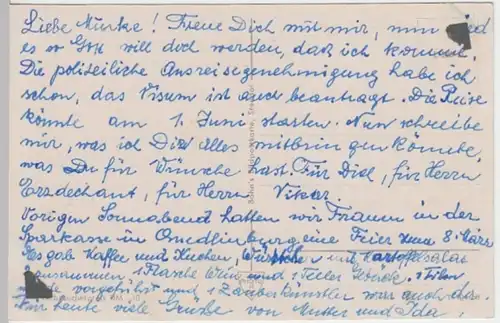 Liebe Murke! Freue Dich mit mir, nun
es so Gott will doch werden, daß ich komme.
Die polizeiliche Ausreisegenehmigung habe ich
schon, das Visum ist auch beantragt. Die Reise
könnte am 1. Juni starten. Nun schreibe
mir, was ich Dir alles mitbringen könnte,
was Du für Wünsche hast. Für Dich, für Herrn
Erzdechant, für Herrn Vikar.
Vorigen Sonnabend hatten wir Frauen in der
Sparkasse in Quedlinburg eine Feier zum 8. März
Es gab Kaffee und Kuchen, Würstchen mit Kartoffelsalat
zusammen, 1 Flasche Wein und 1 Teller Gebäck. 1 Film
wurde vorgeführt und 1 Zauberkünstler war auch da.
Für heute viele Grüße von Mutter und Ida